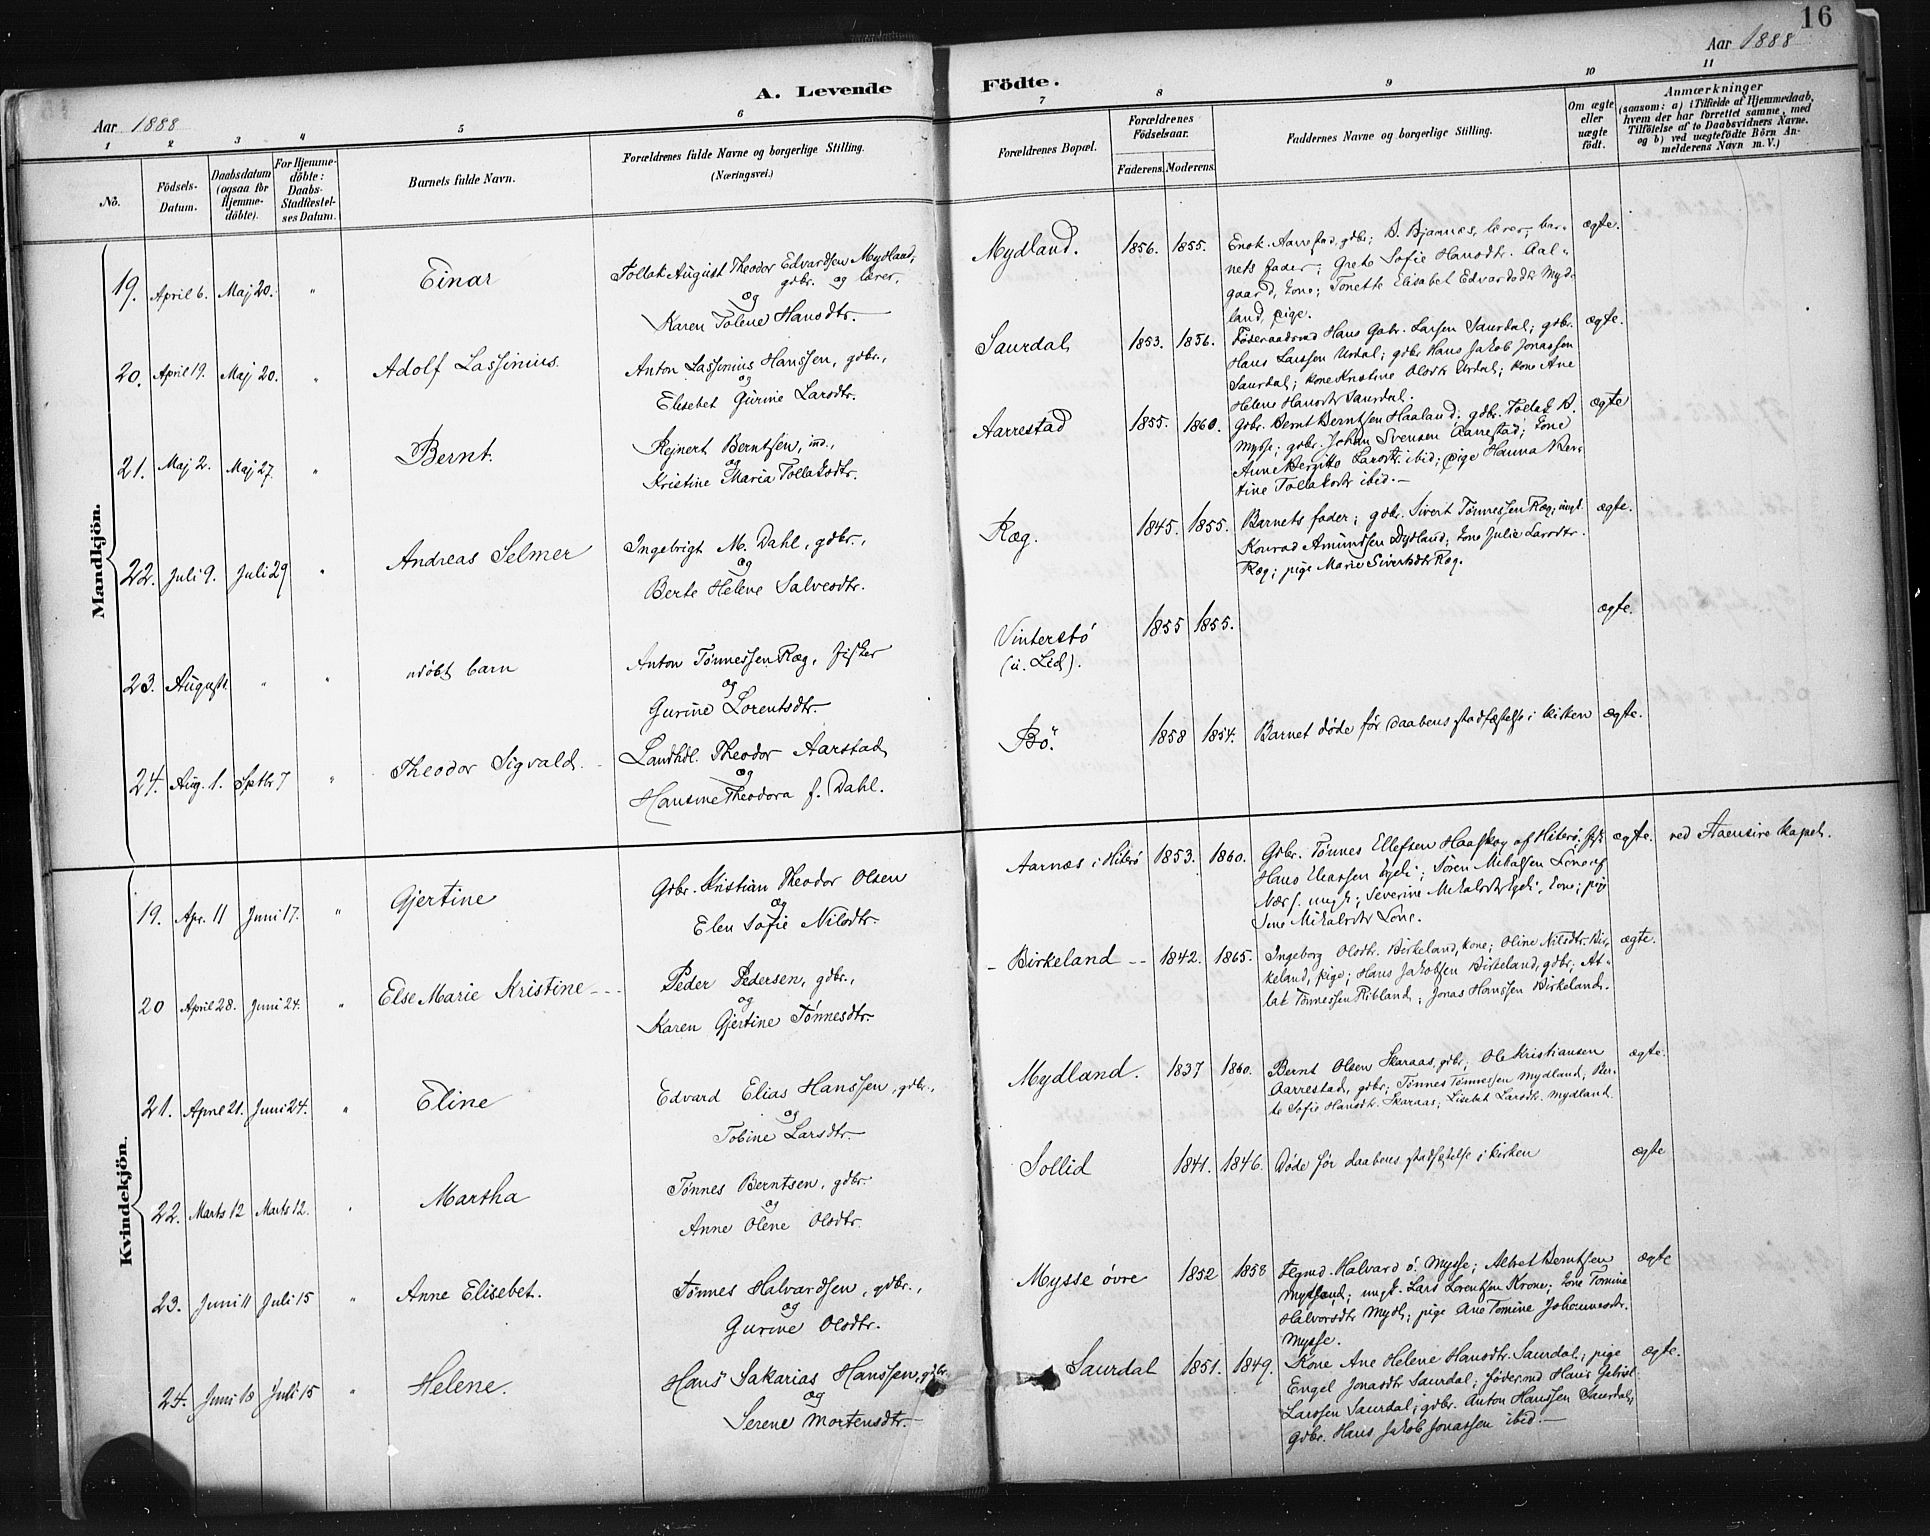 16
Aar 1888
A. Levende Födte.
Aar 1888
1 2 3 4 5 6 7 8 9 10 11
No.
Födsels-Datum.
Daabsdatum (ogsaa for Hjemme-döbte).
For Hjemme-döbte: Daabs-Stadfæstel-ses Datum.
Barnets fulde Navn.
Forældrenes fulde Navne og borgerlige Stilling.
(Næringsvei.)
Forældrenes Bopæl.
Forældrenes Födselsaar.
Faderens. Moderens.
Faddernes Navne og borgerlige Stilling.
Om ægte eller uægte födt.
Anmærkninger
(saasom: a) i Tilfælde af Hjemmedaab,
hvem der har forrettet samme, med
Tilföielse af to Daabsvidners Navne.
og b) ved uægtefödte Börn An-
melderens Navn m. V.)
Mandkjön.
19. April 6. Maj 20. " Einar
Tollak August Theodor Edvardsen Mydland,
gdbr. og lærer,
og
Karen Tolene Hansdtr.
Mydland. 1856. 1855.
Enok Aarrestad, gdbr; B. Bjønnes, lærer, bar-
nets fader; Grete Sofie Hansdtr. Aal-
gaard, kone; Tonette Elisabet Edvardsdtr Myd-
land, pige.
ægte.
20. April 19. Maj 20. " Adolf Lassinius.
Anton Lassinius Hanssen, gdbr.,
og
Elisebet Gurine Larsdtr.
Saurdal 1853. 1856.
Føderaadsmd Hans Gabr. Larsen Saurdal; gdbr.
Hans Larssen Urdal; gdbr Hans Jakob Jonassen
Saurdal; kone Kristine Olsdtr Urdal; kone Ane
Helene Hansdtr Saurdal.
ægte.
21. Maj 2. Maj 27. " Bernt.
Rejnert Berntsen, ind.,
og
Kristine Maria Tollaksdtr.
Aarrestad 1855. 1860.
Gdbr. Bernt Berntsen Haaland; gdbr. Tollak B.
Mysse; gdbr. Johan Svensen Aarrestad; kone
Anne Bergitte Larsdtr. ibid; pige Hanna Ber-
tine Tollaksdtr ibid.—
ægte
22. Juli 9. Juli 29 " Andreas Selmer
Ingebrigt M. Dahl, gdbr.,
og
Berte Helene Salvesdtr.
Ræg. 1845. 1855.
Barnets fader; gdbr. Sivert Tønnessen Ræg; ungk.
Konrad Amundsen Dydland; kone Julie Larsdtr.
Ræg; pige Marie Sivertsdtr Ræg.
ægte.
23. August " " udøbt barn
Anton Tønnessen Ræg, fisker
og
Gurine Lorentsdtr.
Vinterstø
(u. Lid).
1855 1855. ægte.
24. Aug. 1. Septbr 7 " Theodor Sigvald.
Landhdl. Theodor Aarstad
og
Hansine Theodora f. Dahl.
Bö. 1858 1854.
Barnet døde før daabens stadfæstelse i kirken
ægte.
Kvindekjön.
19. Apr. 11 Juni 17. " Gjertine
Gdbr. Kristian Theodor Olsen
og
Elen Sofie Nilsdtr.
Aarnæs i Hiterø 1853. 1860.
Gdbr. Tønnes Ellefsen Haaskog af Hiterø;
Hans Eliassen Egdi; Sören Mikalsen
ungk; Severine Mikalsdtr Egdi, kone; pige
Sine Mikalsdtr
ægte.
ved Aaensire kapel.
20 April 28. Juni 24. " Else Marie Kristine
Peder Pedersen, gdbr.,
og
Karen Gjertine Tønnesdtr.
Birkeland 1842. 1865.
Ingeborg Olsdtr. Birkeland, kone; Oline Nilsdtr. Bir-
keland, pige; Hans Jakobsen Birkeland, gdbr; At-
lak Tønnessen Ribland; Jonas Hanssen Birkeland.
ægte.
21. April 21. Juni 24. " Eline
Edvard Elias Hanssen, gdbr.,
og
Tobine Larsdtr.
Mydland. 1837 1860.
Bernt Olsen Skaraas, gdbr; Ole Kristiansen
Aarrestad, gdbr; Tönnes Tönnessen Mydland; Ber-
te Sofie Hansdtr. Skaraas; Lisebet Larsdtr. Mydland.
ægte.
22. Marts 12 Marts 12. " Martha
Tønnes Berntsen, gdbr.
og
Anne Olene Olsdtr.
Sollid 1841. 1846.
Døde før daabens stadfæstelse i kirken
ægte
23. Juni 11 Juli 15 " Anne Elisebet.
Tønnes Halvardsen, gdbr.,
og
Gurine Olsdtr.
Mysse øvre 1852 1858
Halvard ö. Mysse; Albret Berntsen
Mydland; ungk. Lars Lorentsen Krone; kone Tomine
Halvorsdtr Mydl; pige Ane Tomine Johannesdtr.
Mysse.
ægte
24. Juni 18 Juli 15 " Helene.
Hans Sakarias Hanssen, gdbr.
og
Serene Mortensdtr.
Saurdal 1851. 1849.
Kone Ane Helene Hansdtr. Saurdal; pige
Engel Jonasdtr Saurdal; födermd Hans Gabriel
Larssen Saurdal; gdbr. Anton Hanssen Saurdal;
Gdbr. Hans Jakob Jonassen ibid.—
ægte.